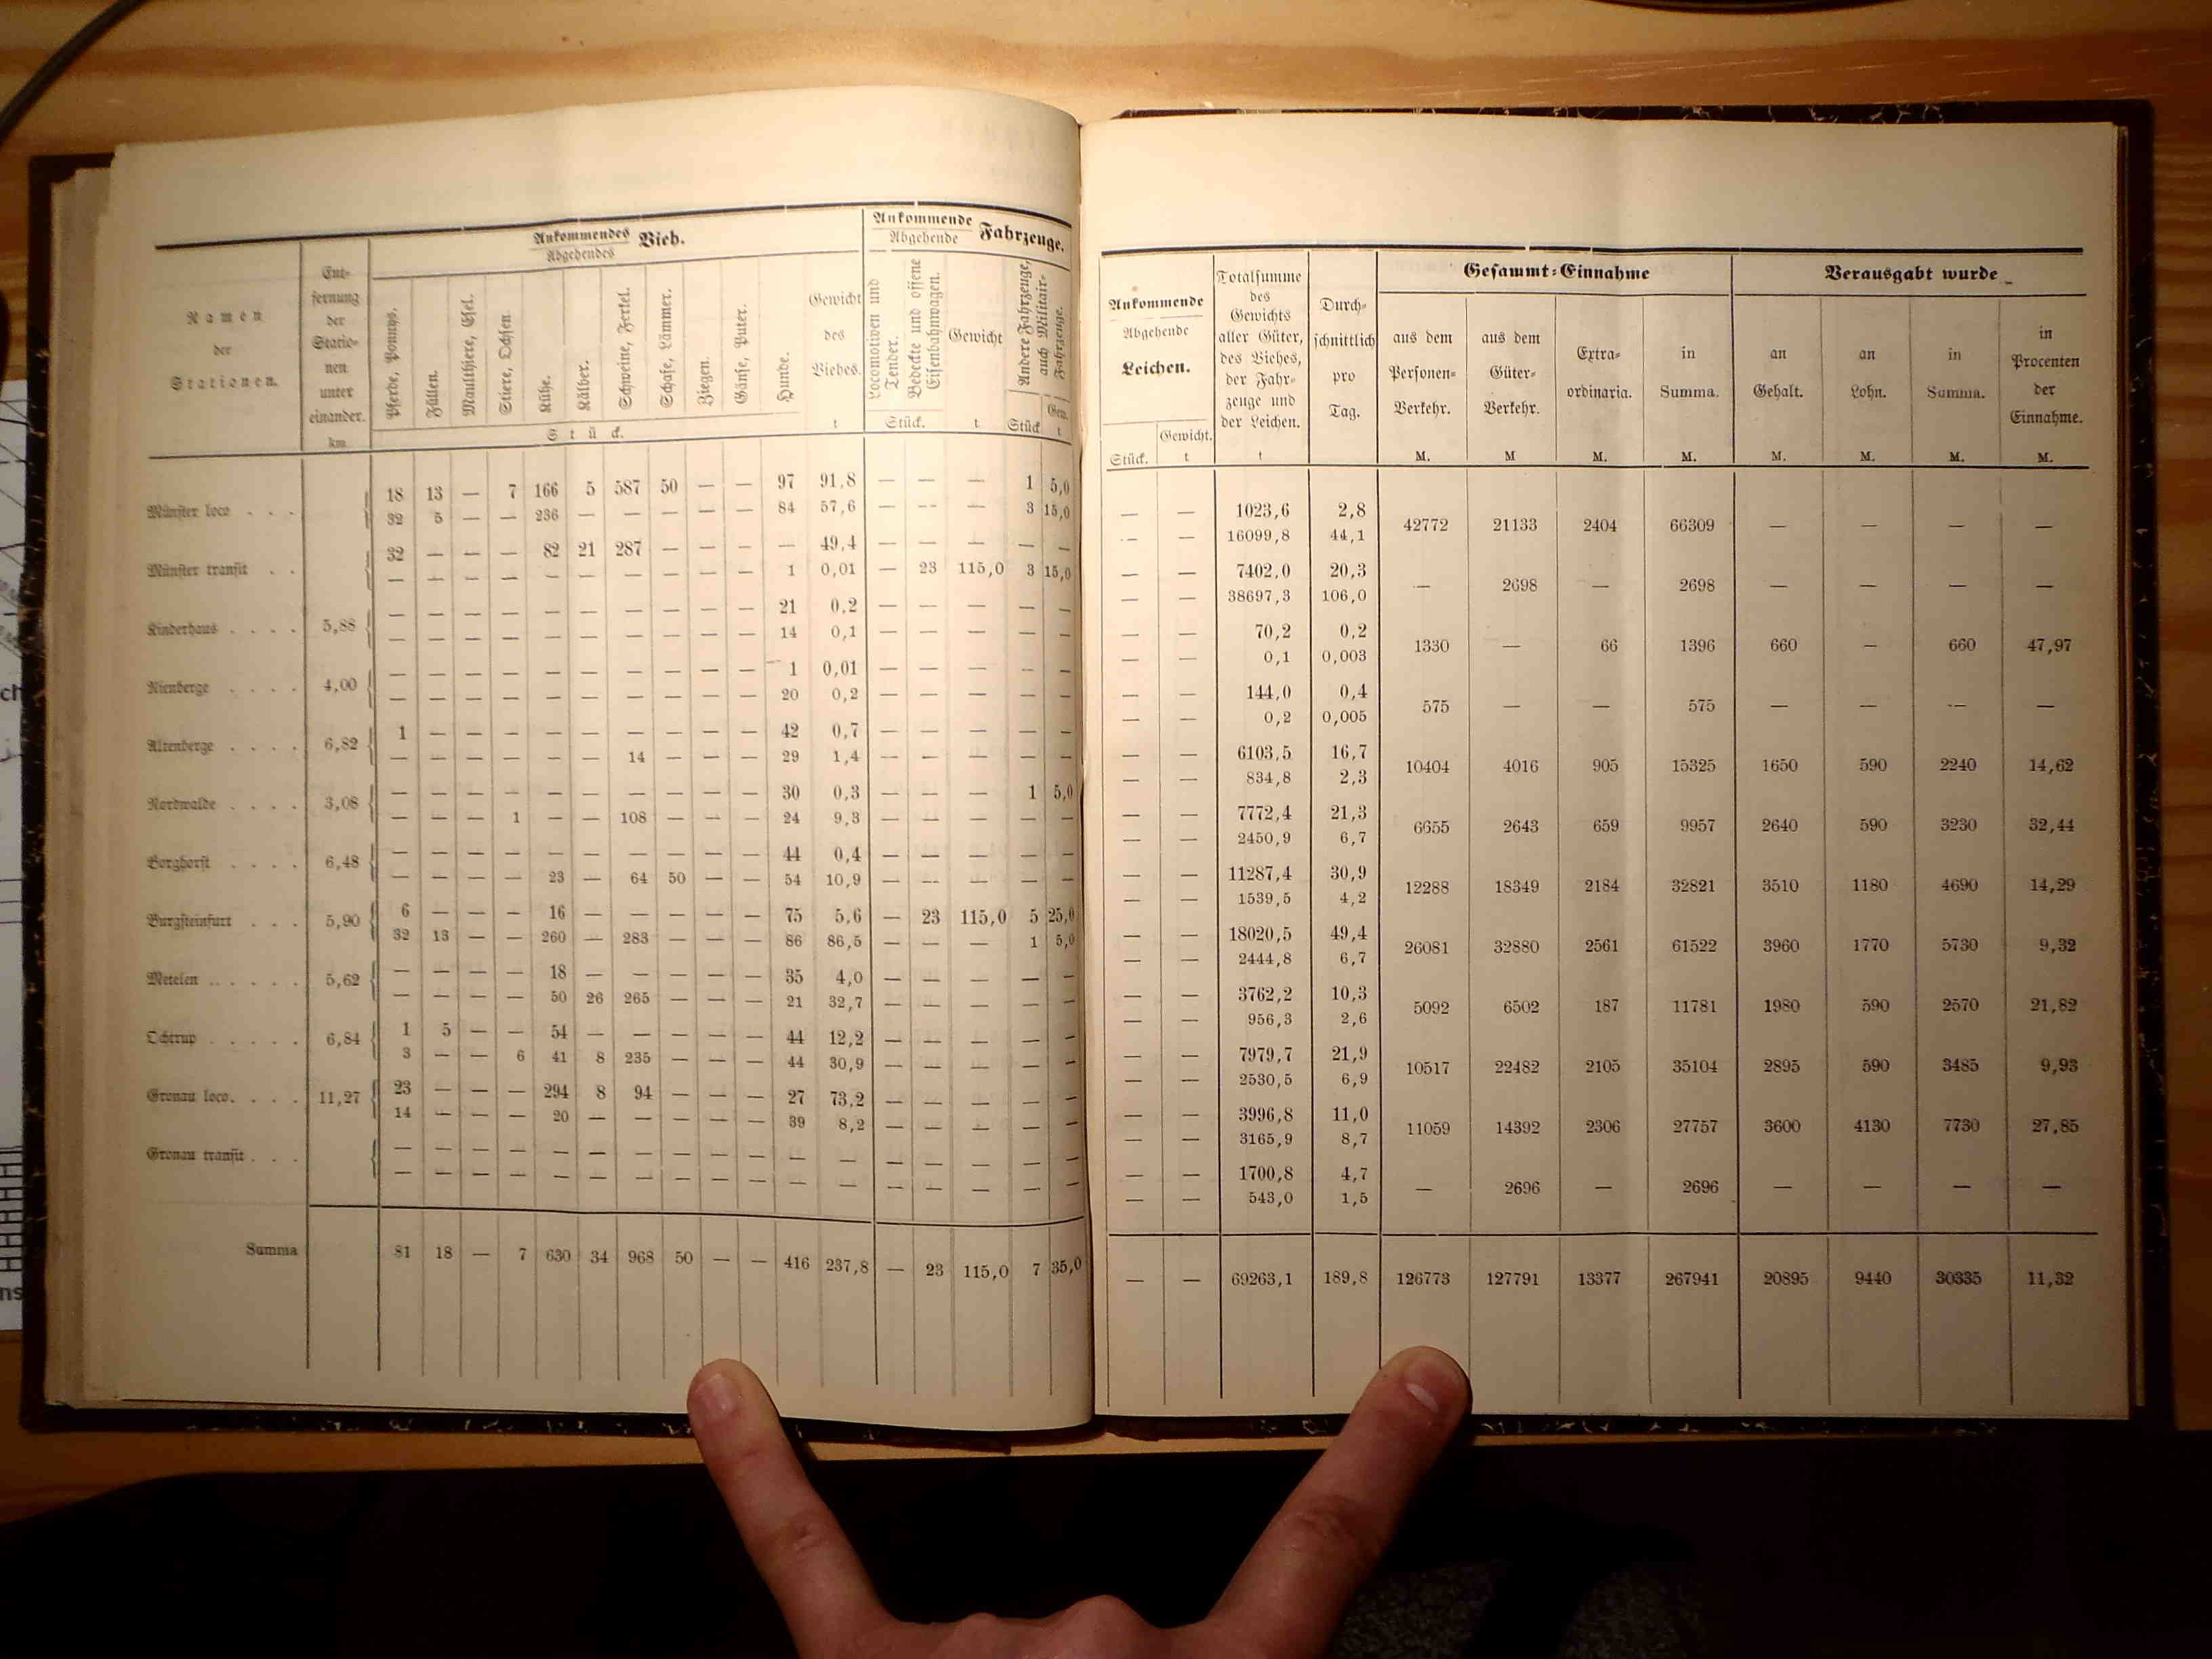 Namen der Stationen.
Entfernung der Stationen unter einander. km
Ankommendes Abgehendes Vieh.
Pferde, Ponnys. Füllen. Maulthiere, Esel. Stiere, Ochsen Kühe. Kälber. Schweine, Ferkel. Schafe, Lämmer. Ziegen. Gänse, Puter. Hunde. Gewicht des Viehes.
Stück. t
Ankommende Abgehende Fahrzeuge.
Locomotiven und Tender. Bedeckte und offene Eisenbahnwagen. Gewicht Andere Fahrzeuge, auch Militair-Fahrzeuge.
Stück. t Stück Gew. t
18 13 — 7 166 5 587 50 — — 97 91,8 — — — 1 5,0
Münster loco . . .
32 5 — — 236 — — — — — 84 57,6 — — — 3 15,0
32 — — — 82 21 287 — — — — 49,4 — — — — —
Münster transit . .
— — — — — — — — — — 1 0,01 — 23 115,0 3 15,0
— — — — — — — — — — 21 0,2 — — — — —
Kinderhaus . . . . 5,88
— — — — — — — — — — 14 0,1 — — — — —
— — — — — — — — — — 1 0,01 — — — — —
Nienberge . . . . 4,00
— — — — — — — — — — 20 0,2 — — — — —
1 — — — — — — — — — 42 0,7 — — — — —
Altenberge . . . . 6,82
— — — — — — 14 — — — 29 1,4 — — — — —
— — — — — — — — — — 30 0,3 — — — 1 5,0
Nordwalde . . . . 3,08
— — — 1 — — 108 — — — 24 9,3 — — — — —
— — — — — — — — — — 44 0,4 — — — — —
Borghorst . . . . 6,48
— — — — 23 — 64 50 — — 54 10,9 — — — — —
6 — — — 16 — — — — — 75 5,6 — 23 115,0 5 25,0
Burgsteinfurt . . . 5,90
32 13 — — 260 — 283 — — — 86 86,5 — — — 1 5,0
— — — — 18 — — — — — 35 4,0 — — — — —
Metelen . . . . . 5,62
— — — — 50 26 265 — — — 21 32,7 — — — — —
1 5 — — 54 — — — — — 44 12,2 — — — — —
Ochtrup . . . . . 6,84
3 — — 6 41 8 235 — — — 44 30,9 — — — — —
23 — — — 294 8 94 — — — 27 73,2 — — — — —
Gronau loco. . . . 11,27
14 — — — 20 — — — — — 39 8,2 — — — — —
— — — — — — — — — — — — — — — — —
Gronau transit . . .
— — — — — — — — — — — — — — — — —
Summa 81 18 — 7 630 34 968 50 — — 416 237,8 — 23 115,0 7 35,0
Ankommende Abgehende Leichen.
Stück. Gewicht. t
Totalsumme des Gewichts aller Güter, des Viehes, der Fahrzeuge und der Leichen. t
Durchschnittlich pro Tag.
Gesammt-Einnahme
aus dem Personen-Verkehr. M. aus dem Güter-Verkehr. M Extraordinaria. M. in Summa. M.
Verausgabt wurde
an Gehalt. M. an Lohn. M. in Summa. M. in Procenten der Einnahme. M.
— — 1023,6 2,8
42772 21133 2404 66309 — — — —
— — 16099,8 44,1
— — 7402,0 20,3
— 2698 — 2698 — — — —
— — 38697,3 106,0
— — 70,2 0,2
1330 — 66 1396 660 — 660 47,97
— — 0,1 0,003
— — 144,0 0,4
575 — — 575 — — — —
— — 0,2 0,005
— — 6103,5 16,7
10404 4016 905 15325 1650 590 2240 14,62
— — 834,8 2,3
— — 7772,4 21,3
6655 2643 659 9957 2640 590 3230 32,44
— — 2450,9 6,7
— — 11287,4 30,9
12288 18349 2184 32821 3510 1180 4690 14,29
— — 1539,5 4,2
— — 18020,5 49,4
26081 32880 2561 61522 3960 1770 5730 9,32
— — 2444,8 6,7
— — 3762,2 10,3
5092 6502 187 11781 1980 590 2570 21,82
— — 956,3 2,6
— — 7979,7 21,9
10517 22482 2105 35104 2895 590 3485 9,93
— — 2530,5 6,9
— — 3996,8 11,0
11059 14392 2306 27757 3600 4130 7730 27,85
— — 3165,9 8,7
— — 1700,8 4,7
— 2696 — 2696 — — — —
— — 543,0 1,5
— — 69263,1 189,8 126773 127791 13377 267941 20895 9440 30335 11,32